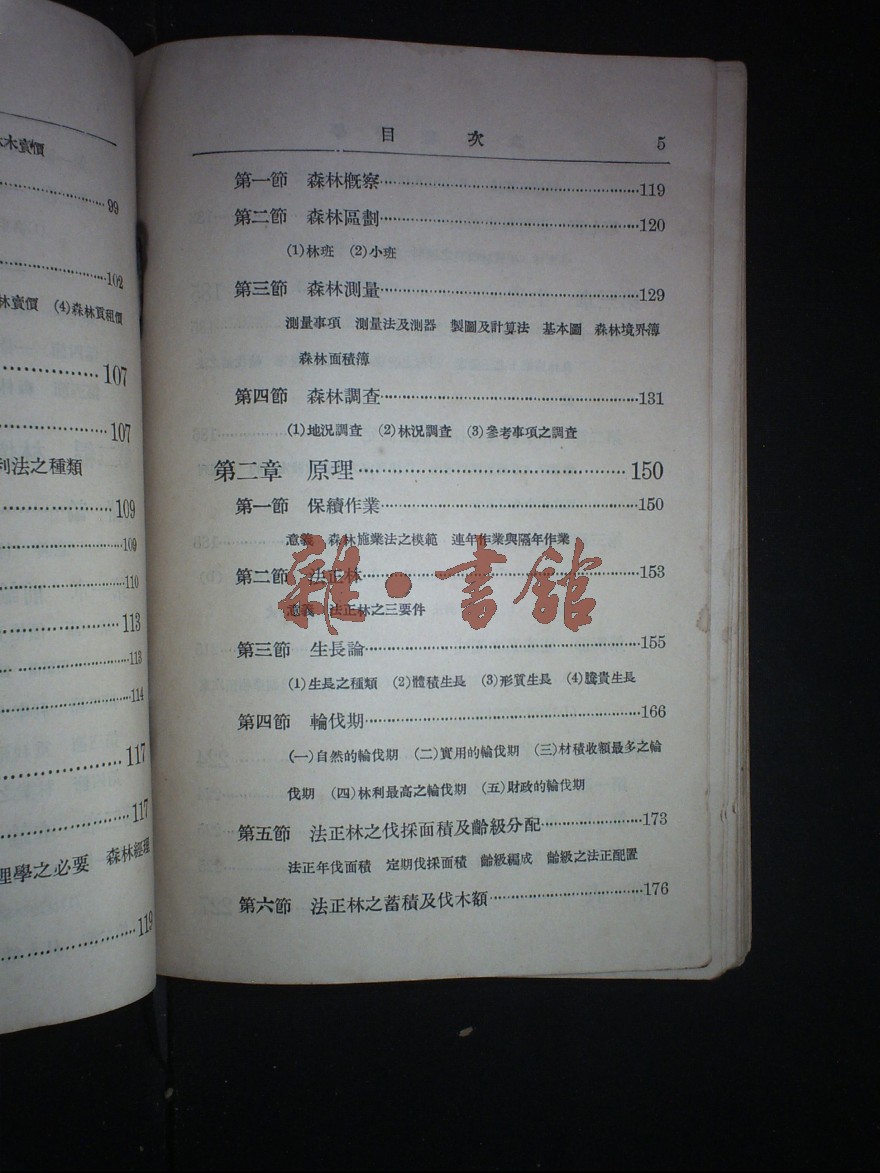 木賣價
99
102
林賣價 (4)森林買租價
107
107
利法之種類
109
109
110
113
113
114
117
117
理學之必要 森林經理
119
目 次 5
第一節 森林概察 119
第二節 森林區劃 120
(1)林班 (2)小班
第三節 森林測量 129
測量事項 測量法及測器 製圖及計算法 基本圖 森林境界簿
森林面積簿
第四節 森林調査 131
(1)地況調査 (2)林況調査 (3)參考事項之調査
第二章 原理 150
第一節 保續作業 150
意義 森林施業法之模範 連年作業與隔年作業
第二節 法正林 153
意義 法正林之三要件
第三節 生長論 155
(1)生長之種類 (2)體積生長 (3)形質生長 (4)騰貴生長
第四節 輪伐期 166
(一)自然的輪伐期 (二)實用的輪伐期 (三)材積收額最多之輪
伐期 (四)林利最高之輪伐期 (五)財政的輪伐期
第五節 法正林之伐採面積及齡級分配 173
法正年伐面積 定期伐採面積 齡級編成 齡級之法正配置
第六節 法正林之蓄積及伐木額 176
雜·書館